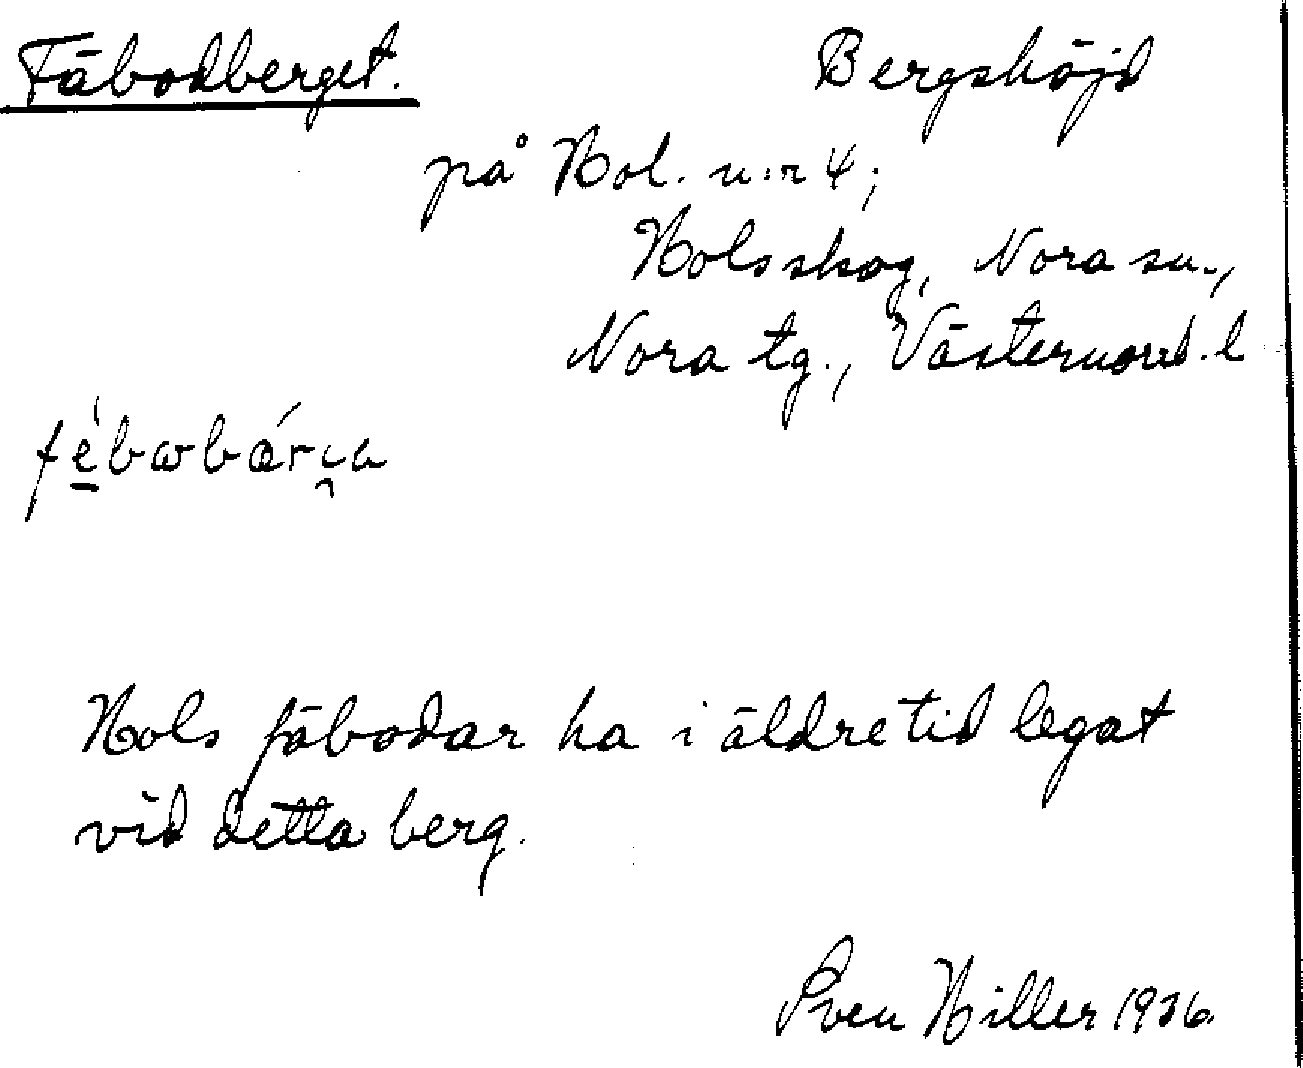 Fäbodberget. Bergshöjd
på Hol. n:r 4;
Holsskog, Nora sn.,
Nora tg., Västernorrl. l
Hols fäbodar ha i äldre tid legat
vid detta berg.
Sven Hiller 1936.